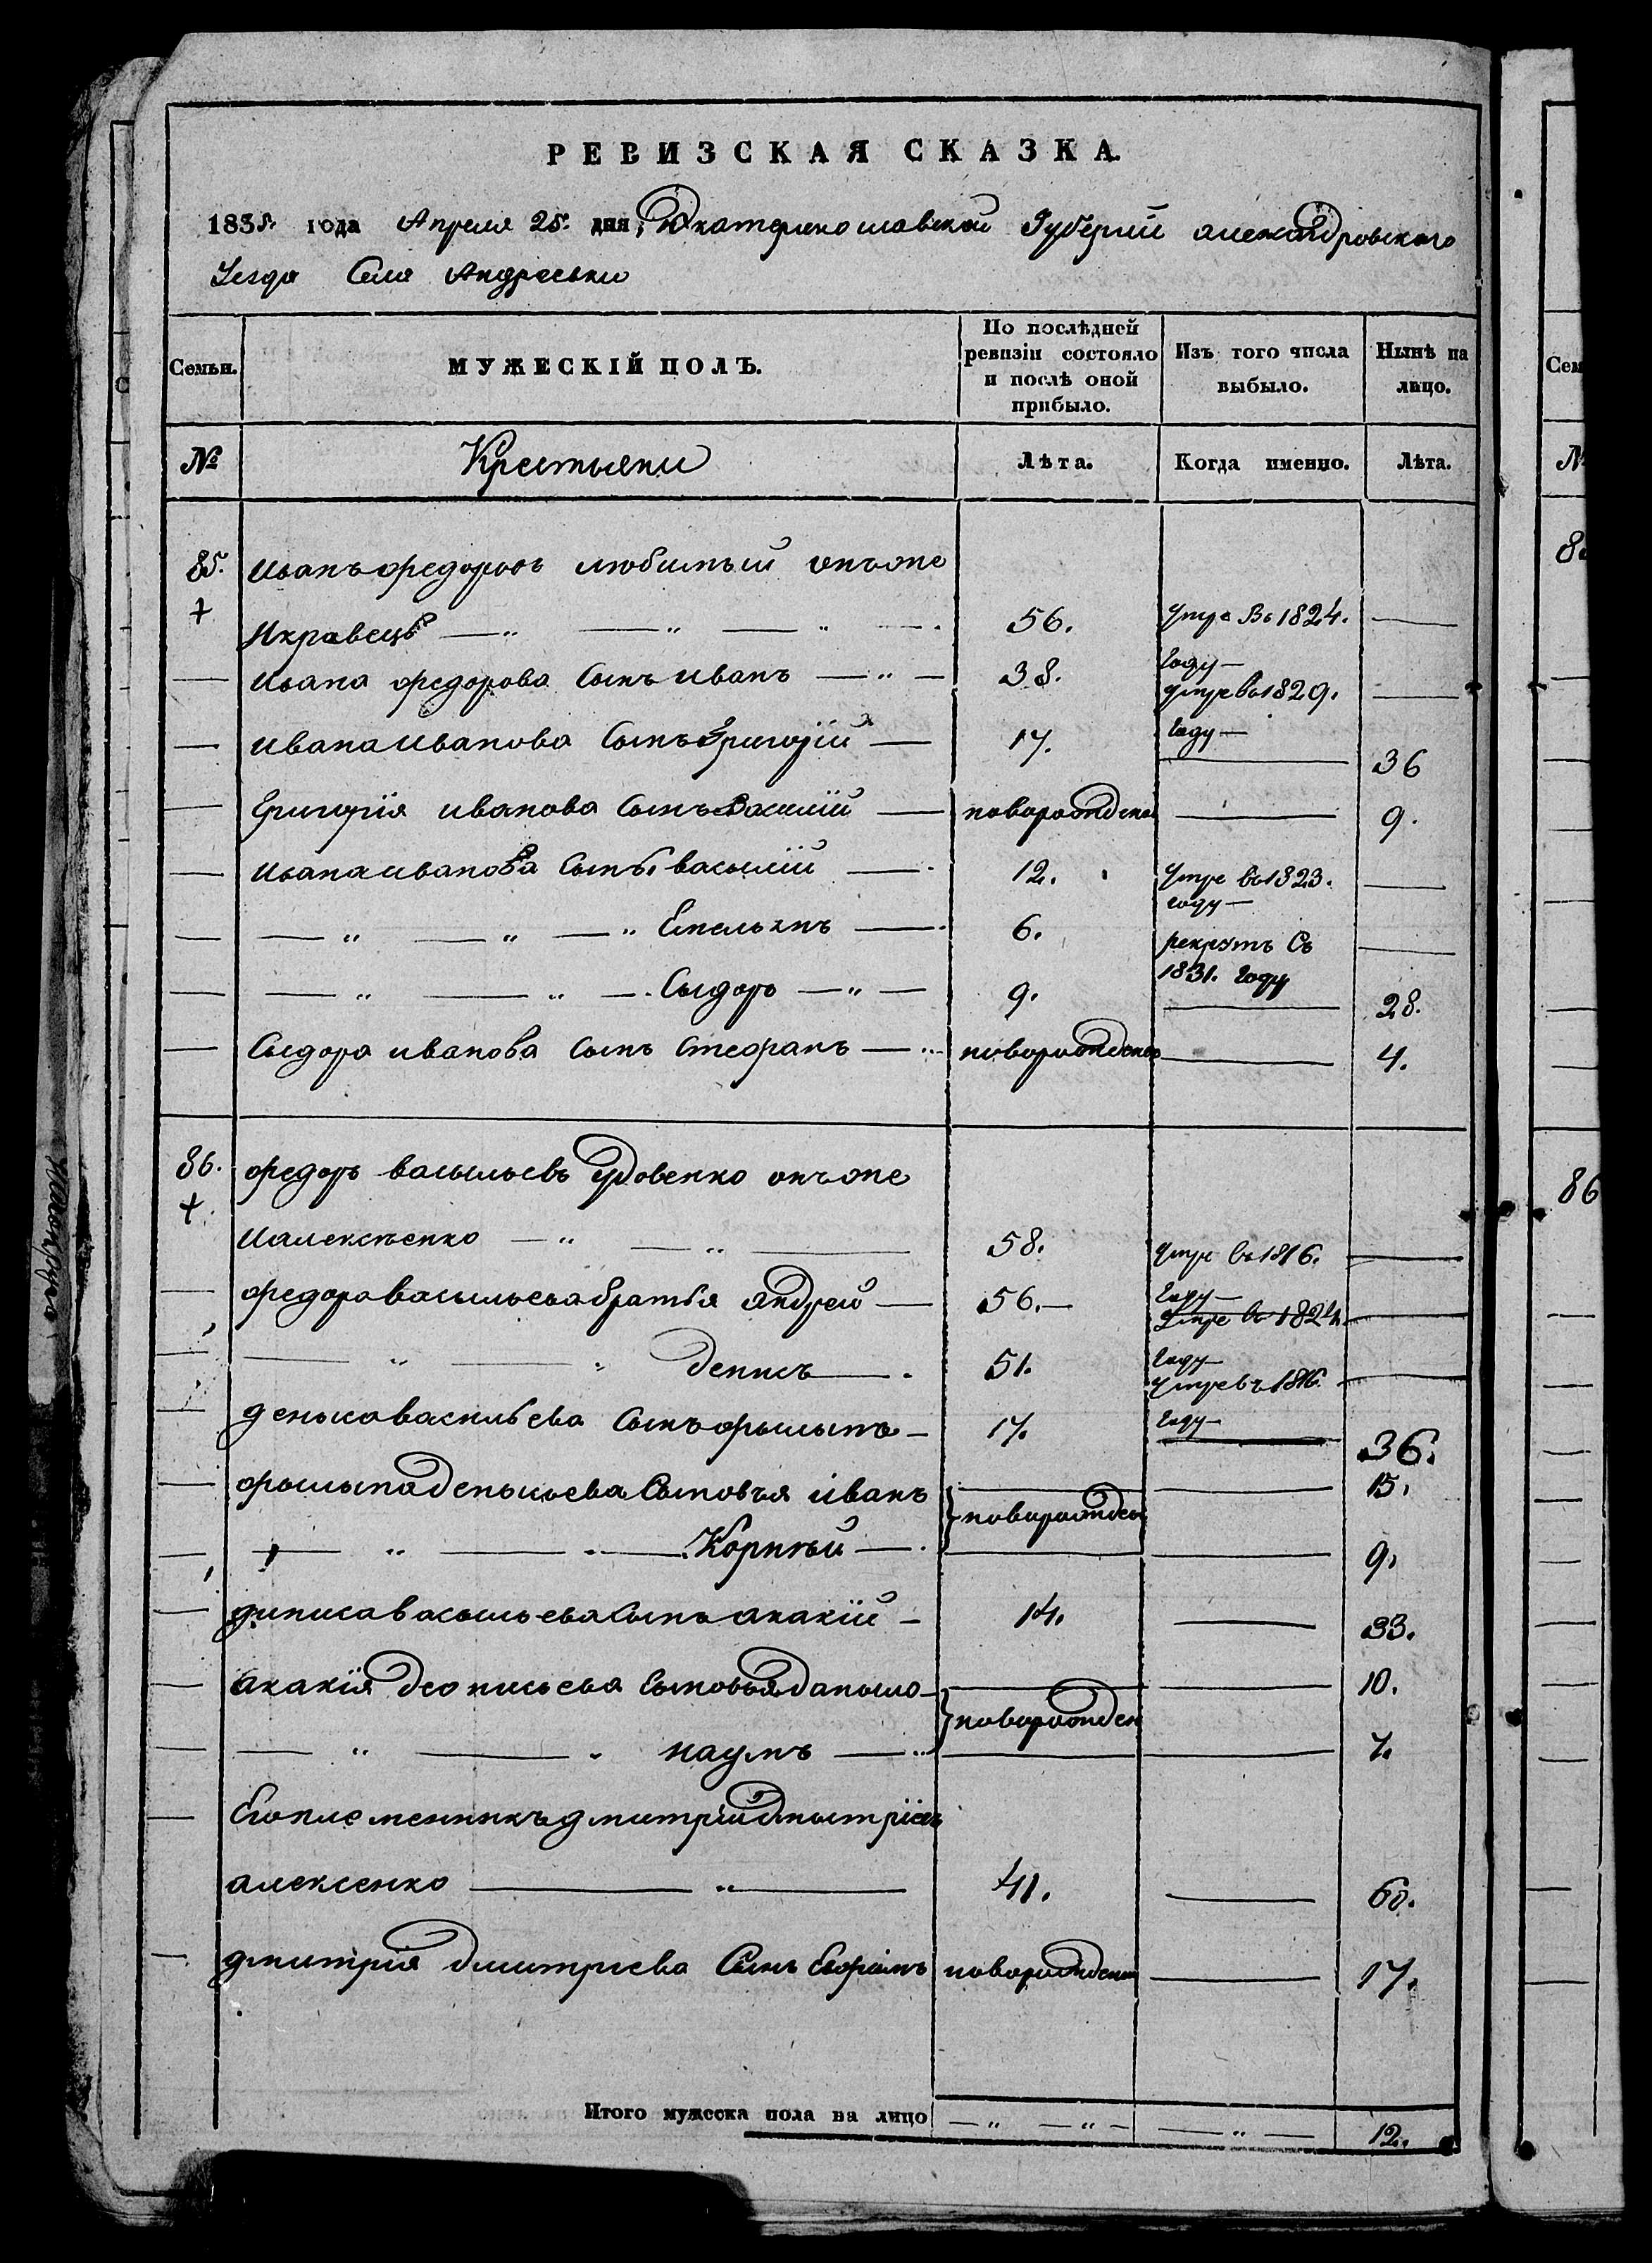 РЕВИЗСКАЯ СКАЗКА.
1835. года Апреля 25. дня, Екатеринославской Губернии александровского
Уезда Села Андреевки
Семьи.
МУЖЕСКІЙ ПОЛЪ.
По послѣдней ревизіи состояло и послѣ оной прибыло.
Изъ того числа выбыло.
Нынѣ на лицо.
№ Крестьяни Лѣта. Когда именно. Лѣта.
85. Иванъ федоровъ любимый онъже
Икравецъ 56. Умре Въ 1824. Году
Ивана федорова Сынъ иванъ 38. умре въ 1829. Году
ивана иванова Сынъ Григорій 17. 36
Григорія иванова Сынъ Василій новорожденъ 9.
ивана иванова Сынъ васылій 12. Умре въ 1823. году
Емельянъ 6. рекрутъ Съ 1831. Году
Сыдоръ 9. 28.
Сыдора иванова Сынъ Стефанъ новорожденъ 4.
86. федоръ васыльевъ Удовенко онъже
Иалексеенко 58. Умре въ 1816. Году
федора васыльева братья андрей 56. Умре въ 1824. Году
денисъ 51. Умре въ 1816. Году
деныса васильева Сынъ фылыпъ 17. 36.
фылыпа денысьева Сыновья іванъ новорожден 15.
Корнѣй 9.
диниса васыльева Сынъ акакій 14. 33.
акакія деонисьева Сыновья даныло новорожден 10.
наумъ 7.
Его племенникъ дмитрій дмытріевъ
алексенко 41. 60.
дмитрія дмитриева Сынъ Ефримъ новорожденъ 17.
Итого мужеска пола на лицо 12.
86